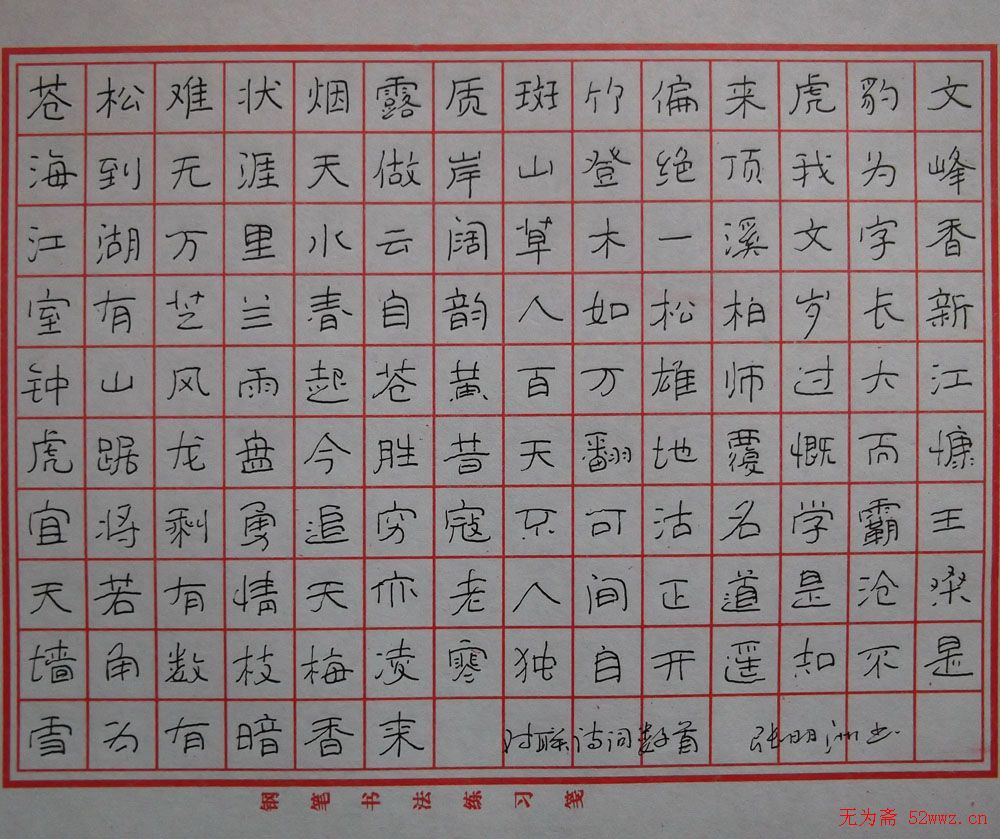 苍松难状烟露质斑竹偏来虎豹文
海到无涯天做岸山登绝顶我为峰
江湖万里水云阔草木一溪文字香
室有芝兰春自韵人如松柏岁长新
钟山风雨起苍黄百万雄师过大江
虎踞龙盘今胜昔天翻地覆慨而慷
宜将剩勇追穷寇不可沽名学霸王
天若有情天亦老人间正道是沧桑
墙角数枝梅凌寒独自开遥知不是
雪为有暗香来 对联诗词数首 张明洲书
钢笔书法练习笺
无为斋 52wwz.cn